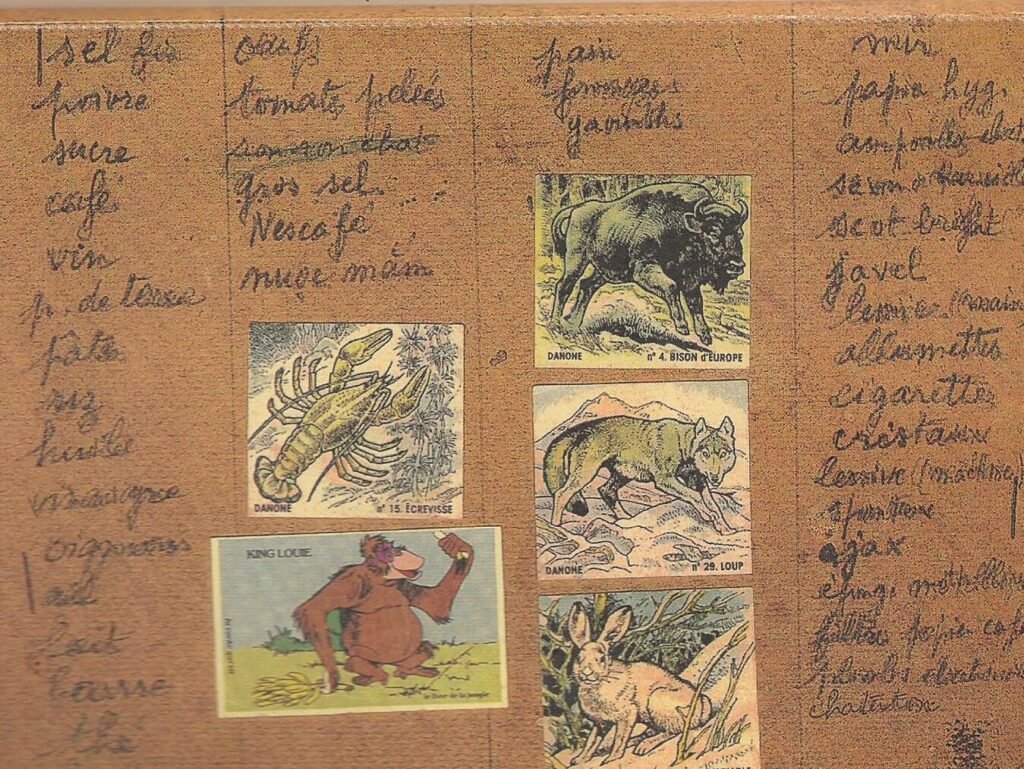 sel fin
poivre
sucre
café
vin
p. de terre
pâte
riz
huile
vinaigre
oignons
ail
lait
beurre
thé
oeufs
tomate pelées
gros sel
Nescafé
DANONE n° 15. ÉCREVISSE
KING LOUIE
le livre de la jungle
pain
fromages
yaourths
DANONE n° 4. BISON d'EUROPE
DANONE n° 29. LOUP
mir
papier hyg.
ampoules
savon
scot bright
javel
lessive (main)
allumettes
cigarettes
cristaux
lessive (machine)
ajax
filtre papier café